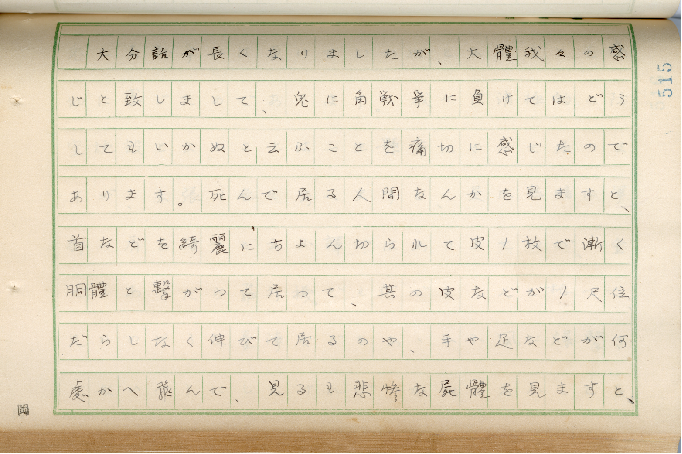 大分話が長くなりましたが、大體我々の感
じと致しまして、兎に角戦爭に負けてはどう
してもいかぬと云ふことを痛切に感じたので
あります。死んで居る人間なんかを見ますと、
首などを綺麗にちよん切られて皮1枚で漸く
胴體と繫がつて居つて、其の皮などが1尺位
だらしなく伸びて居るのや、手や足などが何
處かへ飛んで、見るも悲慘な屍體を見ますと、
515